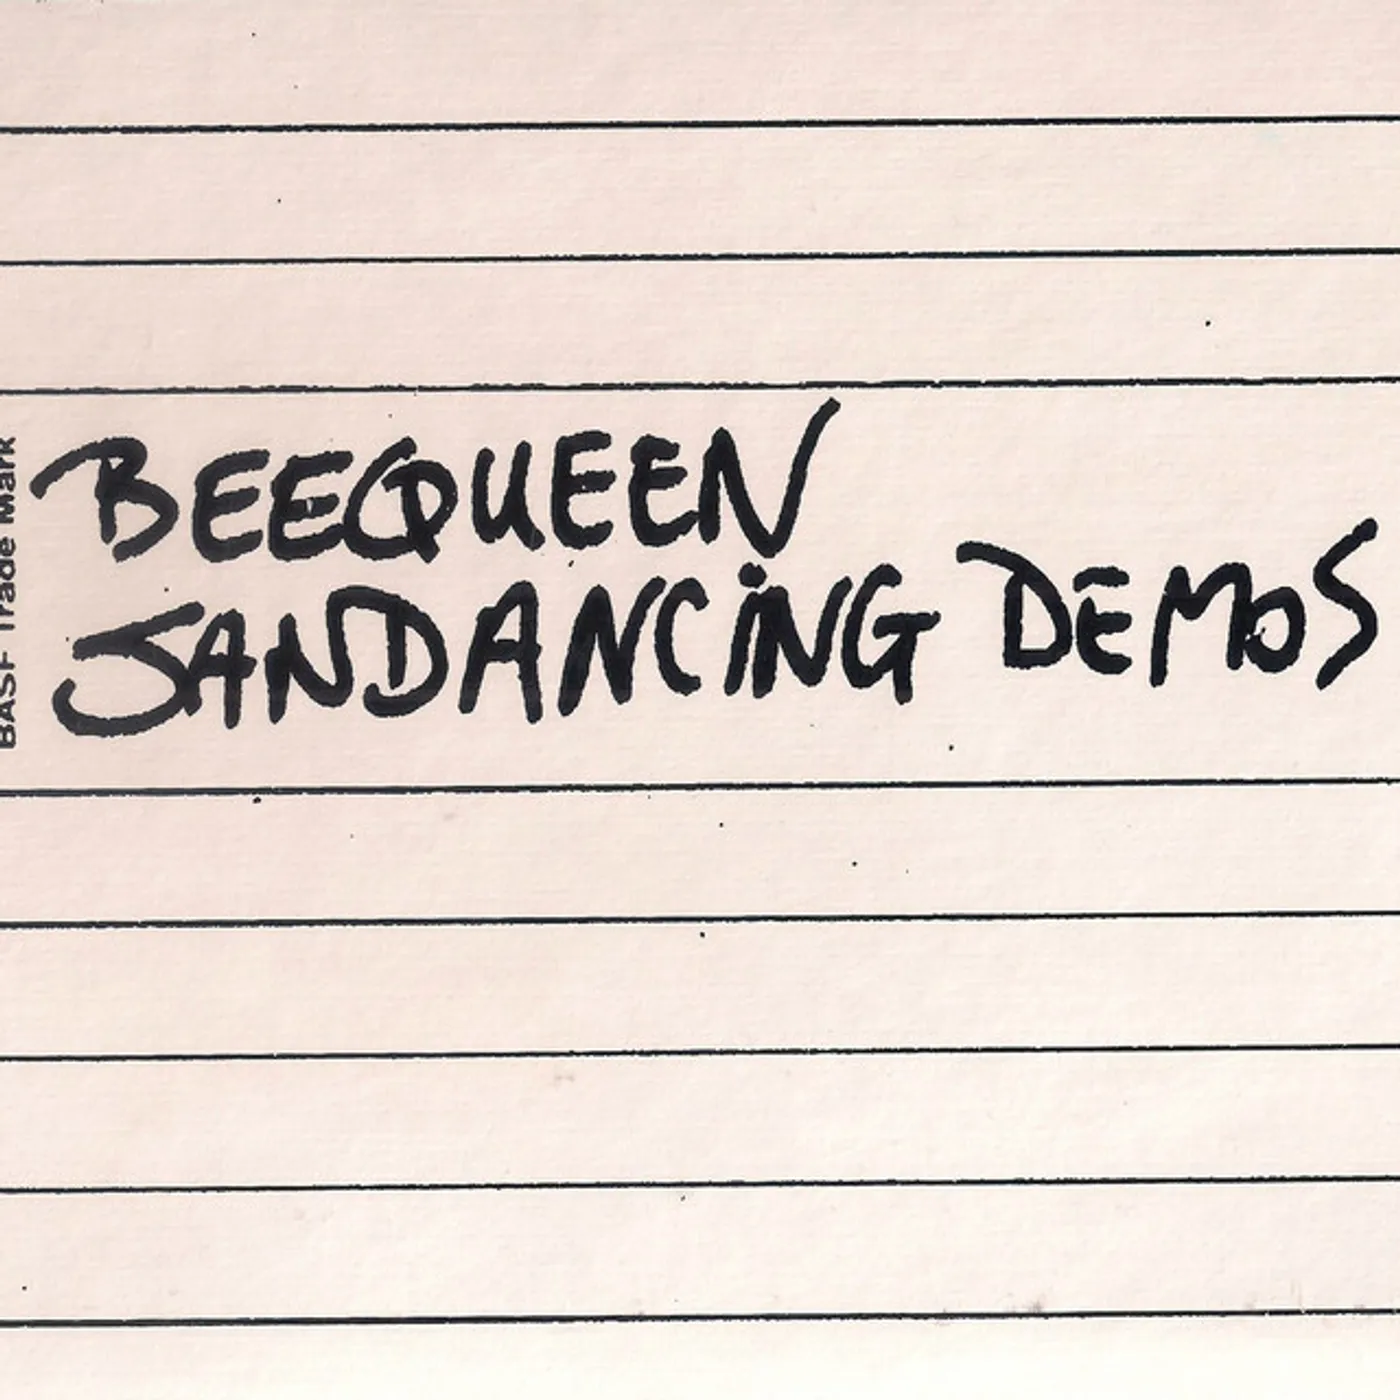 BASF Trade Mark
BEEQUEEN
SANDANCING DEMOS